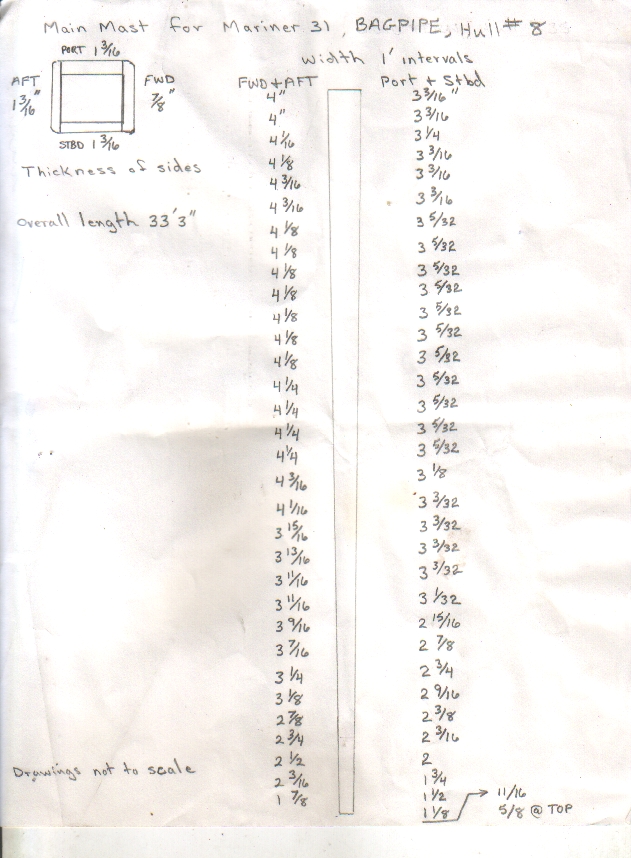 Main Mast for Mariner 31, BAGPIPE, Hull # 8
PORT 1 3/16
AFT 1 3/16"
FWD 7/8"
STBD 1 3/16
Thickness of sides
Overall length 33'3"
Width 1' intervals
FWD + AFT Port + Stbd
4" 3 3/16"
4" 3 3/16
4 1/16 3 1/4
4 1/8 3 3/16
4 3/16 3 3/16
4 3/16 3 3/16
4 1/8 3 5/32
4 1/8 3 5/32
4 1/8 3 5/32
4 1/8 3 5/32
4 1/8 3 5/32
4 1/8 3 5/32
4 1/8 3 5/32
4 1/4 3 5/32
4 1/4 3 5/32
4 1/4 3 5/32
4 1/4 3 5/32
4 3/16 3 1/8
4 1/16 3 3/32
3 15/16 3 3/32
3 13/16 3 3/32
3 11/16 3 3/32
3 11/16 3 1/32
3 9/16 2 15/16
3 7/16 2 7/8
3 1/4 2 3/4
3 1/8 2 9/16
2 7/8 2 3/8
2 3/4 2 3/16
2 1/2 2
2 3/16 1 3/4
1 7/8 1 1/2 → 11/16
1 1/8 5/8 @ TOP
Drawings not to scale